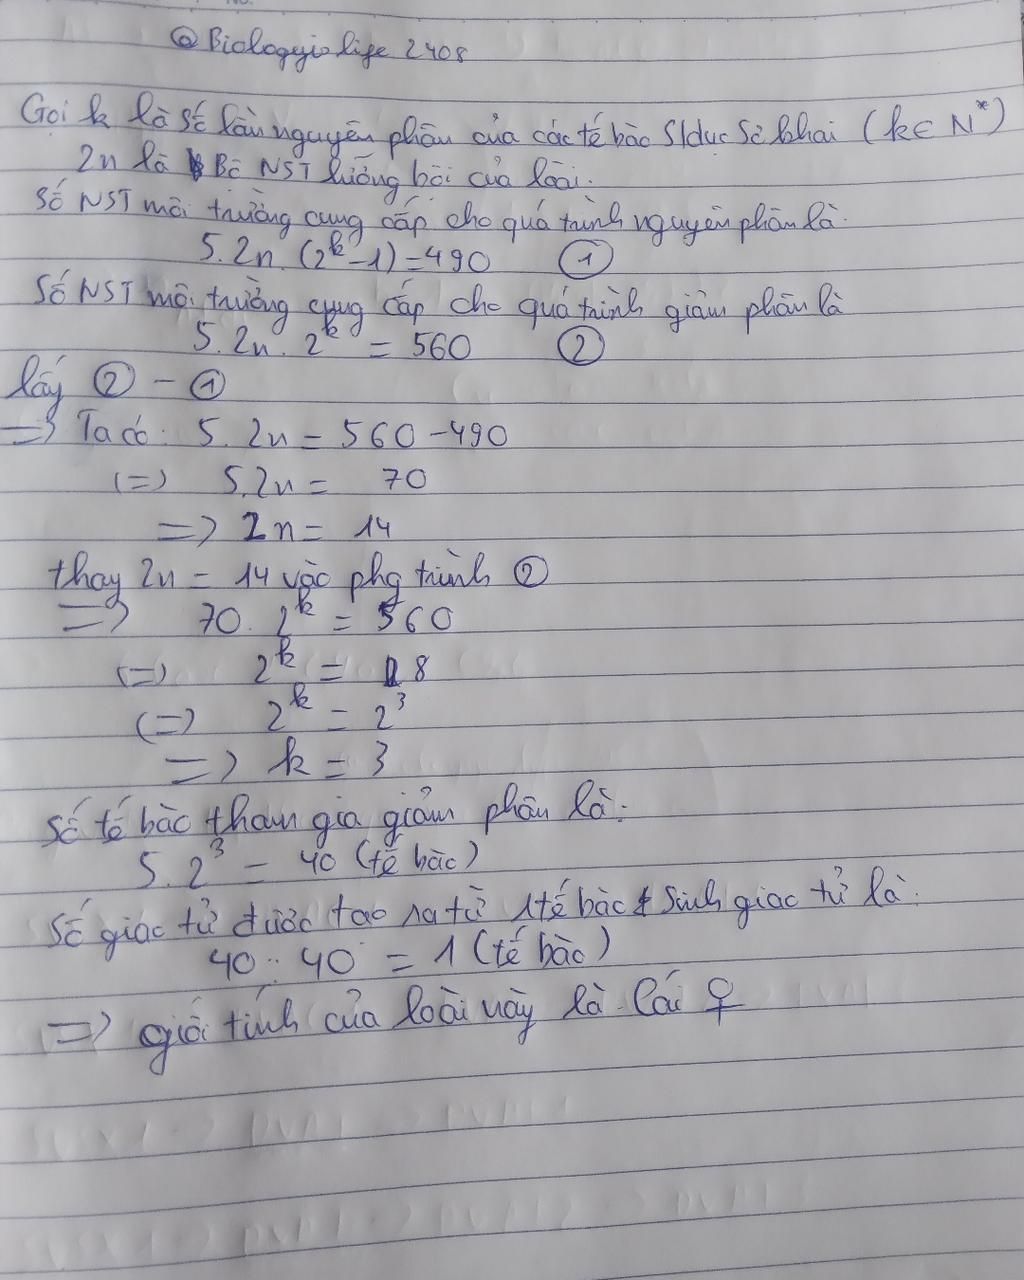 @Biologyislife 2408
Gọi k là số lần nguyên phân của các tế bào S/dục Sơ khai (k∈ N*)
2n là Bộ NST lưỡng bội của loài.
Số NST môi trường cung cấp cho quá trình nguyên phân là:
5.2n.(2^k-1)=490 ①
Số NST môi trường cung cấp cho quá trình giảm phân là
5.2n.2^k = 560 ②
lấy ② - ①
=> Ta có: 5.2n = 560-490
(=) 5.2n = 70
=> 2n = 14
thay 2n = 14 vào phg trình ②
=> 70.2^k = 560
(=) 2^k = 8
(=) 2^k = 2^3
=> k = 3
Số tế bào tham gia giảm phân là:
5.2^3 = 40 (tế bào)
Số giao tử được tạo ra từ 1 tế bào sinh giao tử là:
40 : 40 = 1 (tế bào)
=> giới tính của loài này là Cái ♀